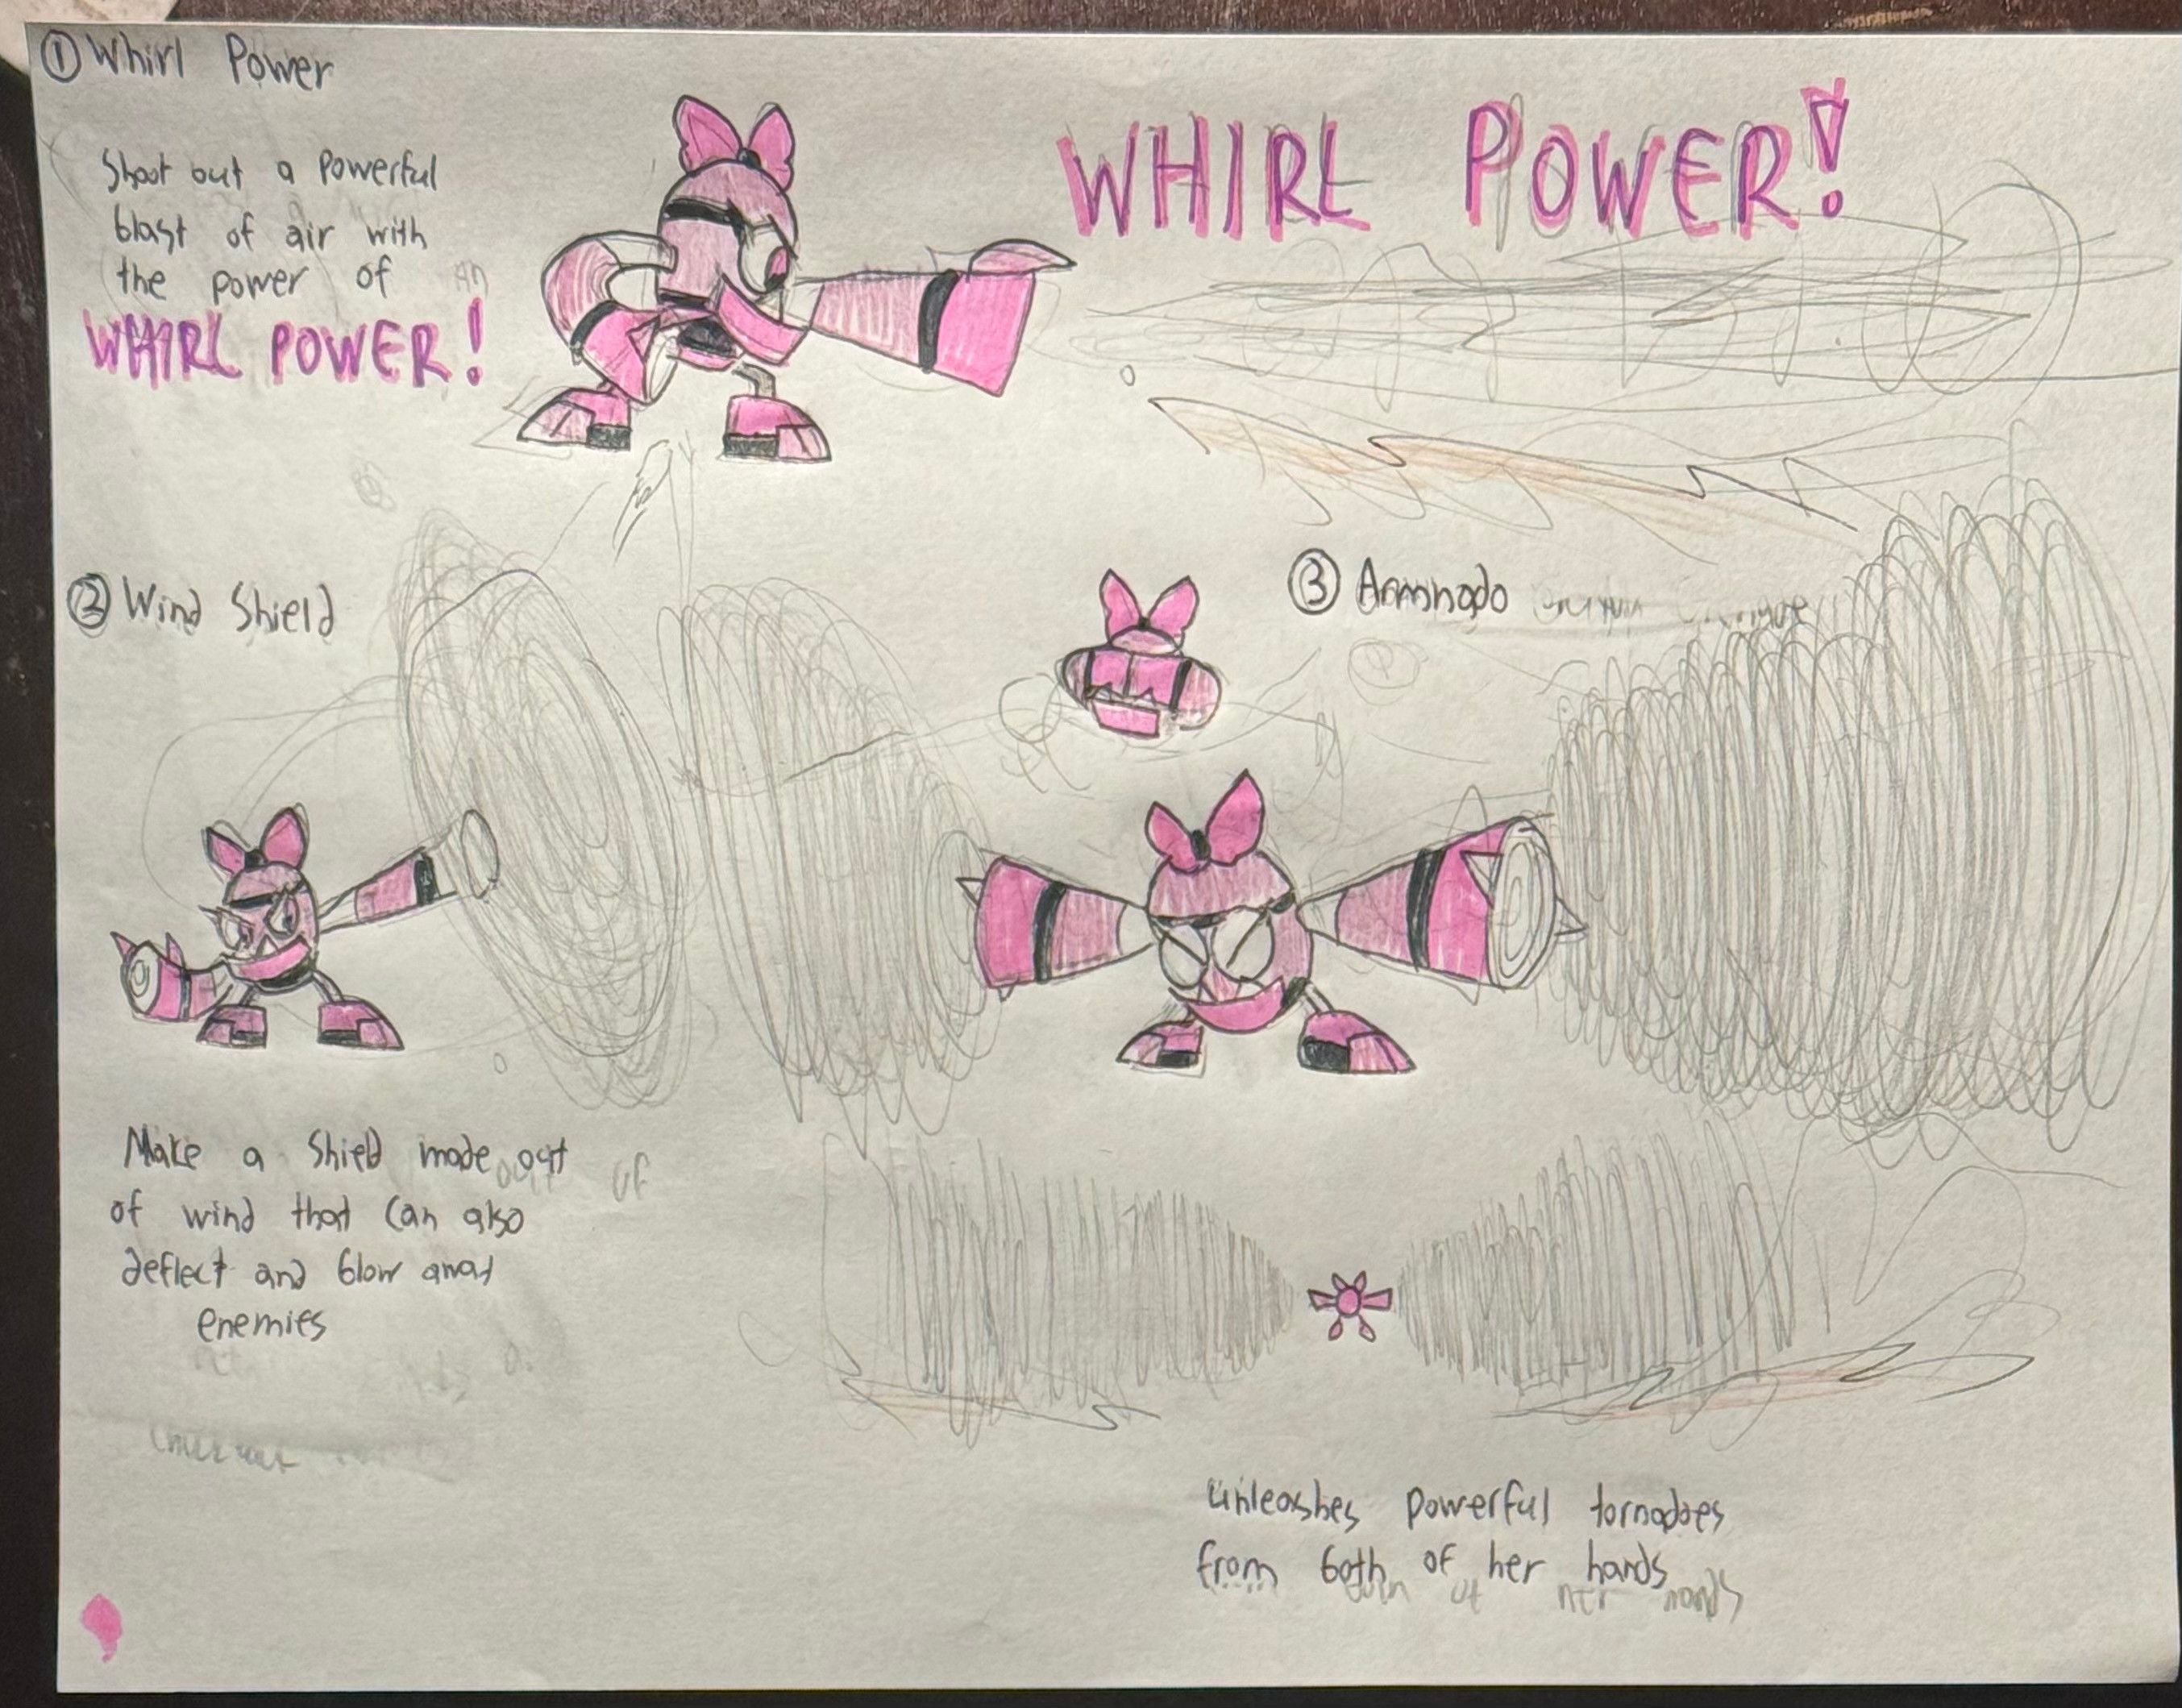 ① Whirl Power
Shoot out a powerful
blast of air with
the power of
WHIRL POWER!
WHIRL POWER!
② Wind Shield
Make a Shield made out
of wind that can also
deflect and blow away
enemies
③ Armnado
Unleashes powerful tornadoes
from both of her hands